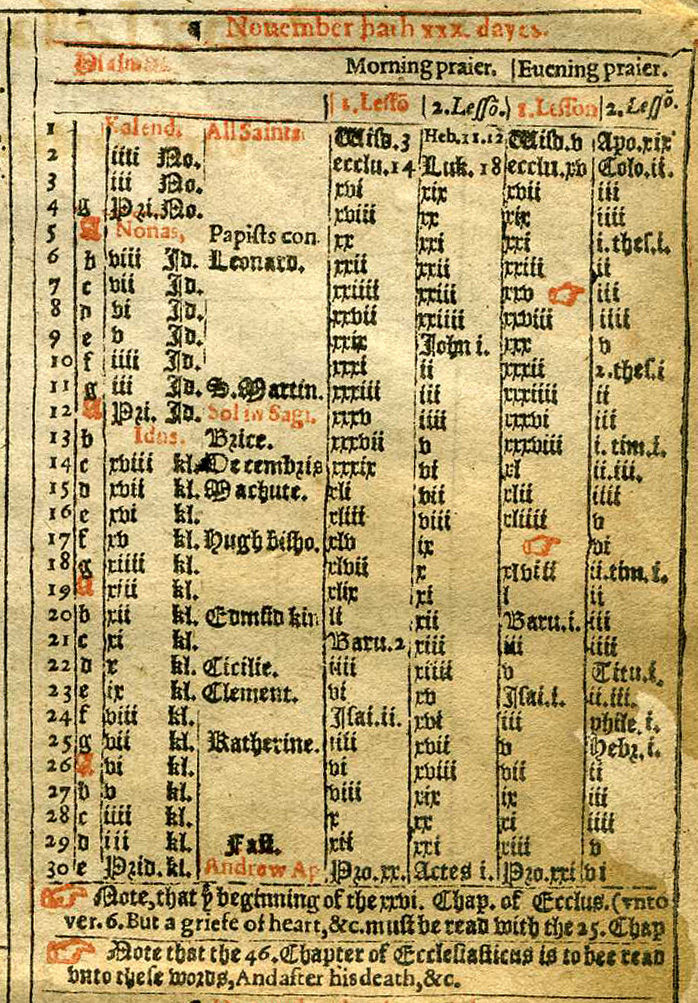 Nouember hath xxx. dayes.
Psalmes. Morning praier. Euening praier.
1.Lessõ 2.Lessõ. 1.Lesson 2.Lessõ.
1 Kalend. All Saints Wisd.3 Heb.11.12 Wisd.v Apo.xix
2 iiii No. ecclu.14 Luk.18 ecclu.xv Colo.ii.
3 iii No. xvi xix xvii iii
4 g Pri.No. xviii xx xix iiii
5 A Nonas, Papists con. xx xxi xxi i.thes.i.
6 b viii Jd. Leonard. xxii xxii xxiii ii
7 c vii Jd. xxiiii xxiii xxv ☞ iii
8 d vi Jd. xxvii xxiiii xxviii iiii
9 e v Jd. xxix John i. xxx v
10 f iiii Jd. xxxi ii xxxii 2.thes.i
11 g iii Jd. S.Martin. xxxiii iii xxxiiii ii
12 A Pri. Jd. Sol in Sagi. xxxv iiii xxxvi iii
13 b Idus. Brice. xxxvii v xxxviii i.tim.i.
14 c xviii kl. Decembris xxxix vi xl ii.iii.
15 d xvii kl. Machute. xli vii xlii iiii
16 e xvi kl. xliii viii xliiii v
17 f xv kl. Hugh bisho. xlv ix ☞ vi
18 g xiiii kl. xlvii x xlviii ii.tim.i.
19 A xiii kl. xlix xi l ii
20 b xii kl. Edmũd kin li xii Baru.i. iii
21 c xi kl. Baru.2 xiii iii iiii
22 d x kl. Cicilie. iiii xiiii v Titu.i.
23 e ix kl. Clement. vi xv Isai.i. ii.iii.
24 f viii kl. Isai.ii. xvi iii phile.i.
25 g vii kl. Katherine. iiii xvii v Hebr.i.
26 A vi kl. vi xviii vii ii
27 b v kl. viii xix ix iii
28 c iiii kl. x xx xi iiii
29 d iii kl. Fast. xii xxi xiii v
30 e Prid.kl. Andrew Ap Pro.xx. Actes i. Pro.xxi vi
☞ Note,that yᵉ beginning of the xxvi. Chap. of Ecclus.(vnto
ver.6.But a griefe of heart,&c.must be read with the 25.Chap
☞ Note that the 46.Chapter of Ecclesiasticus is to bee read
vnto these words,And after his death,&c.